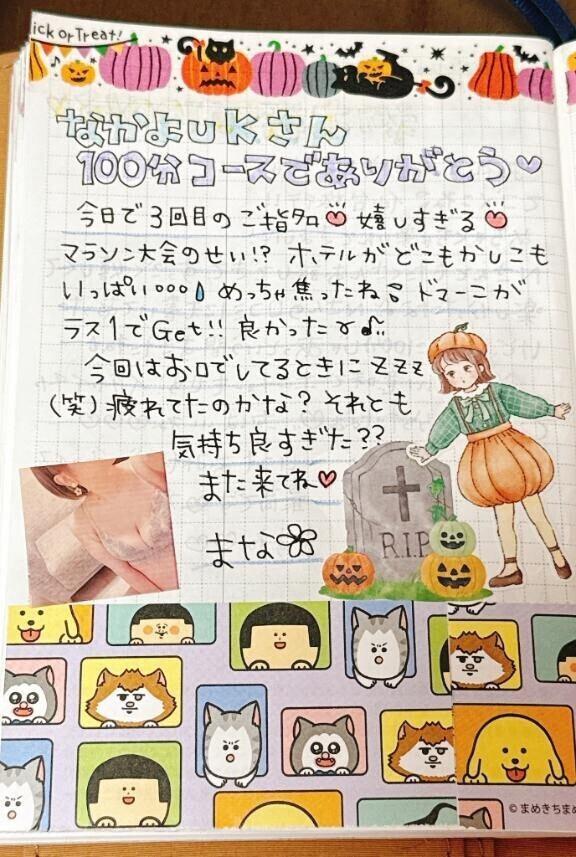 ick or Treat!
なかよUKさん
100分コースでありがとう♡
今日で3回目のご指名♡ 嬉しすぎる♡
マラソン大会のせい!? ホテルがどこもかしこも
いっぱい°°° めっちゃ焦ったね ドマーニが
ラス1でGet!! 良かった♪
今回はお口でしてるときに ZZZ
(笑)疲れてたのかな? それとも
気持ち良すぎた??
また来てね♡
まな
R.I.P
© まめきちまめ